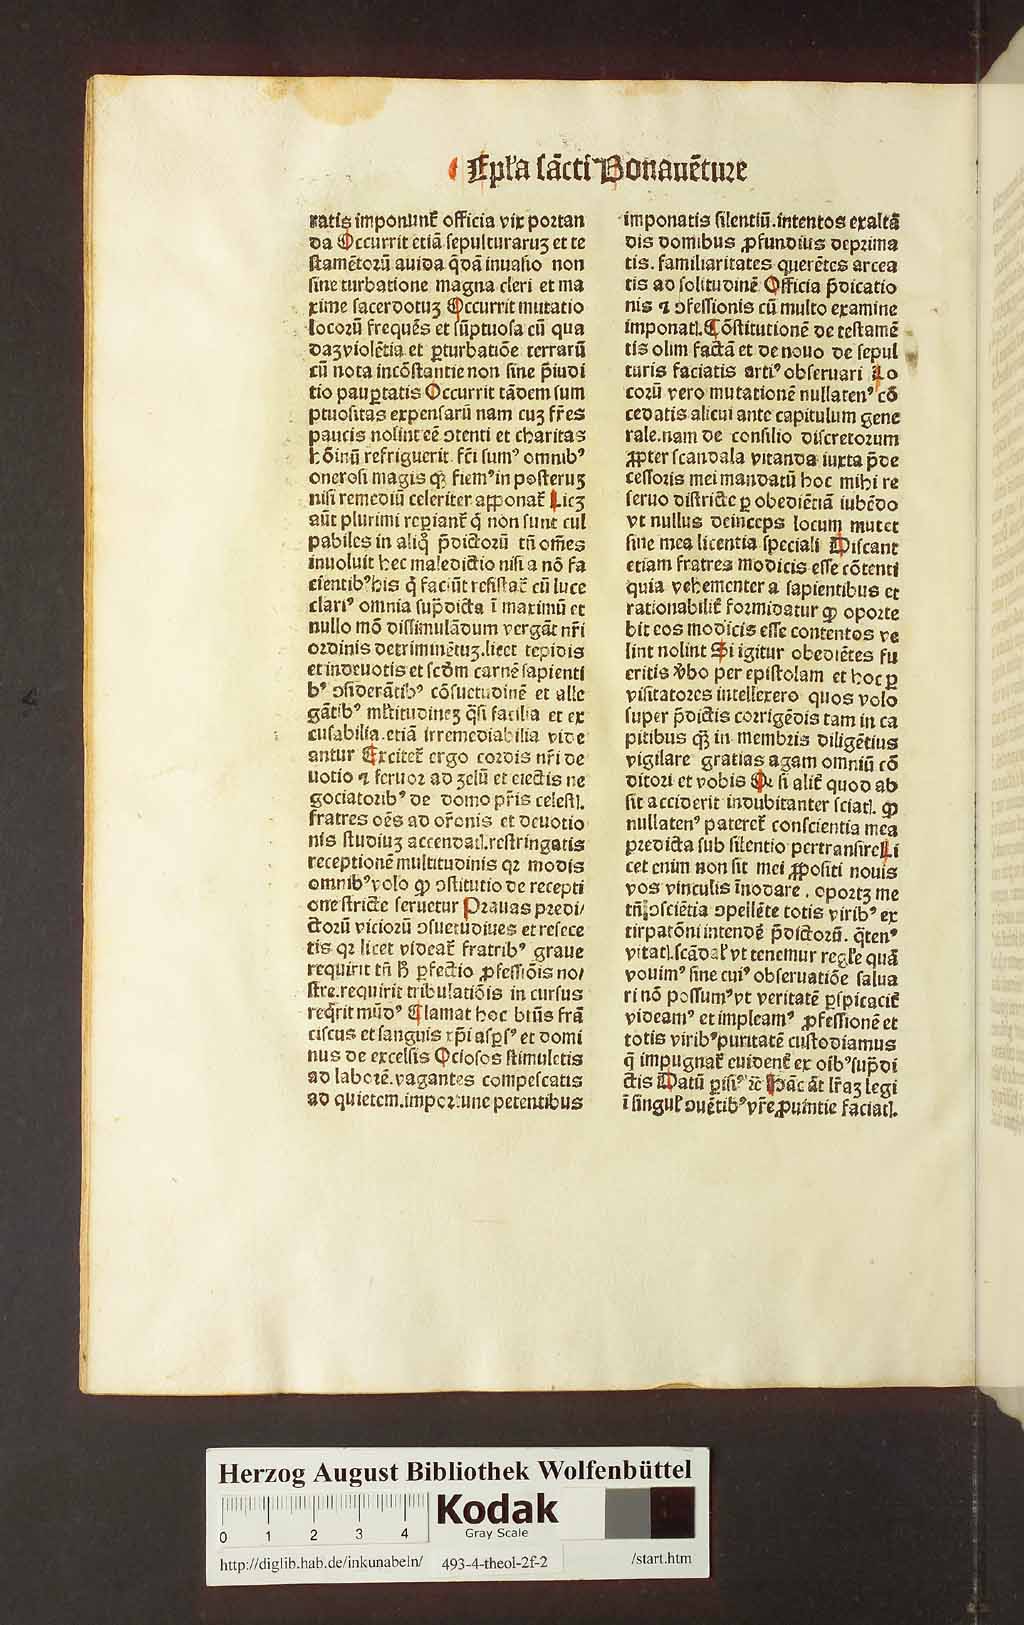 Epl'a sãcti Bonauẽture
ratis imponunt̃ officia vix portan
da Occurrit etiã sepulturaruꝫ et te
stamẽtorũ auida q̃dã inuasio non
sine turbatione magna cleri et ma
xime sacerdotuꝫ Occurrit mutatio
locorũ frequẽs et sũptuosa cũ qua
daꝫ violẽtia et ꝑturbatiõe terrarũ
cũ nota incõstantie non sine p̃iudi
tio pauꝑtatis Occurrit tãdem sum
ptuositas expensarũ nam cuꝫ fr̃es
paucis nolint eẽ ↄtenti et charitas
hõinũ refriguerit fc̃i sumꝰ omnibꝰ
onerosi magis qꝫ fiemꝰ in posteruꝫ
nisi remediũ celeriter apponat̃ Licꝫ
aũt plurimi reꝑiant̃ q̃ non sunt cul
pabiles in aliq̃ p̃dictorũ tñ om̃es
inuoluit hec maledictio nisi a nõ fa
cientibꝰ his q̃ faciũt resistat̃ cũ luce
clariꝰ omnia sup̃dicta ĩ maximũ et
nullo mõ dissimulãdum vergãt nr̃i
ordinis detrimẽtuꝫ.licet tepidis
et indeuotis et scðm carnẽ sapienti
bꝰ ↄsiderãtibꝰ cõsuetudinẽ et alle
gãtibꝰ ml̃titudineꝫ q̃si facilia et ex
cusabilia.etiã irremediabilia vide
antur Excitet̃ ergo cordis nr̃i de
uotio ⁊ feruor ad ꝫelũ et eiectis ne
gociatoribꝰ de domo pr̃is celestꝭ.
fratres oẽs ad or̃onis et deuotio
nis studiuꝫ accendatꝭ.restringatis
receptionẽ multitudinis qꝛ modis
omnibꝰ volo ꝙ ↄstitutio de recepti
one stricte seruetur Prauas predi/
ctorũ viciorũ ↄsuetudines et resece
tis qꝛ licet videat̃ fratribꝰ graue
requirit tñ ß ꝑfectio ꝓfessiõis no/
stre.requirit tribulatiõis in cursus
req̃rit mũdꝰ Clamat hoc btũs frã
ciscus et sanguis xp̃i asꝑsꝰ et domi
nus de excelsis Ociosos stimuletis
ad laborẽ.vagantes compescatis
ad quietem.importune petentibus
imponatis silentiũ.intentos exaltã
dis domibus ꝓfundius deprima
tis. familiaritates querẽtes arcea
tis ad solitudinẽ Officia p̃dicatio
nis ⁊ ↄfessionis cũ multo examine
imponatꝭ.Cõstitutionẽ de testamẽ
tis olim factã et de nouo de sepul
turis faciatis artiꝰ obseruari Lo
corũ vero mutationẽ nullatenꝰ cõ
cedatis alicui ante capitulum gene
rale.nam de consilio discretorum
ꝓpter scandala vitanda iuxta p̃de
cessoris mei mandatũ hoc mihi re
seruo districte ꝑ obediẽtiã iubẽdo
vt nullus deinceps locum mutet
sine mea licentia speciali Discant
etiam fratres modicis esse cõtenti
quia vehementer a sapientibus et
rationabilit̃ formidatur ꝙ oporte
bit eos modicis esse contentos ve
lint nolint Si igitur obediẽtes fu
eritis v̾bo per epistolam et hoc ꝑ
visitatores intellexero quos volo
super p̃dictis corrigẽdis tam in ca
pitibus qꝫ in membris diligẽtius
vigilare gratias agam omniũ cõ
ditori et vobis Qꝛ si alit̃ quod ab
sit acciderit indubitanter sciatꝭ. ꝙ
nullatenꝰ pateret̃ conscientia mea
predicta sub silentio pertransire Li
cet enim non sit mei ꝓpositi nouis
vos vinculis ĩnodare . oportꝫ me
tñ ↄsciẽtia ↄpellẽte totis viribꝰ ex
tirpatõni intendẽ p̃dictorũ. q̃tenꝰ
vitatꝭ.scãdal̃ vt tenemur regl̃e quã
vouimꝰ sine cuiꝰ obseruatiõe salua
ri nõ possumꝰ vt veritatẽ ꝑspicacit̃
videamꝰ et impleamꝰ ꝓfessionẽ et
totis viribꝰ puritatẽ custodiamus
q̃ impugnat̃ euident̃ ex oĩbꝰ sup̃di
ctis Datũ ꝑisiꝰ ⁊c̃ Hãc ãt lr̃aꝫ legi
ĩ singul̃ ↄuẽtibꝰ vr̃e ꝓuintie faciatꝭ.
Herzog August Bibliothek Wolfenbüttel
0 1 2 3 4
Kodak
Gray Scale
http://diglib.hab.de/inkunabeln/ 493-4-theol-2f-2 /start.htm